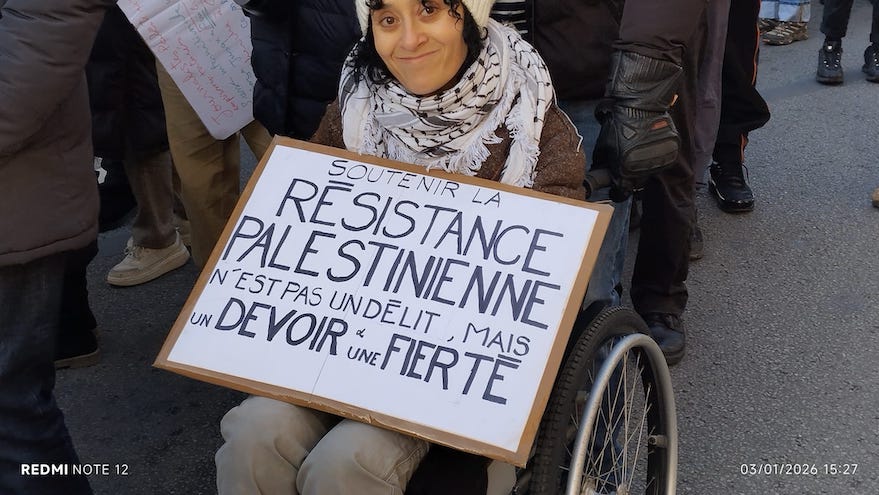 SOUTENIR LA
RÉSISTANCE
PALESTINIENNE
N'EST PAS UN DÉLIT, MAIS
UN DEVOIR & UNE FIERTÉ
REDMI NOTE 12
03/01/2026 15:27